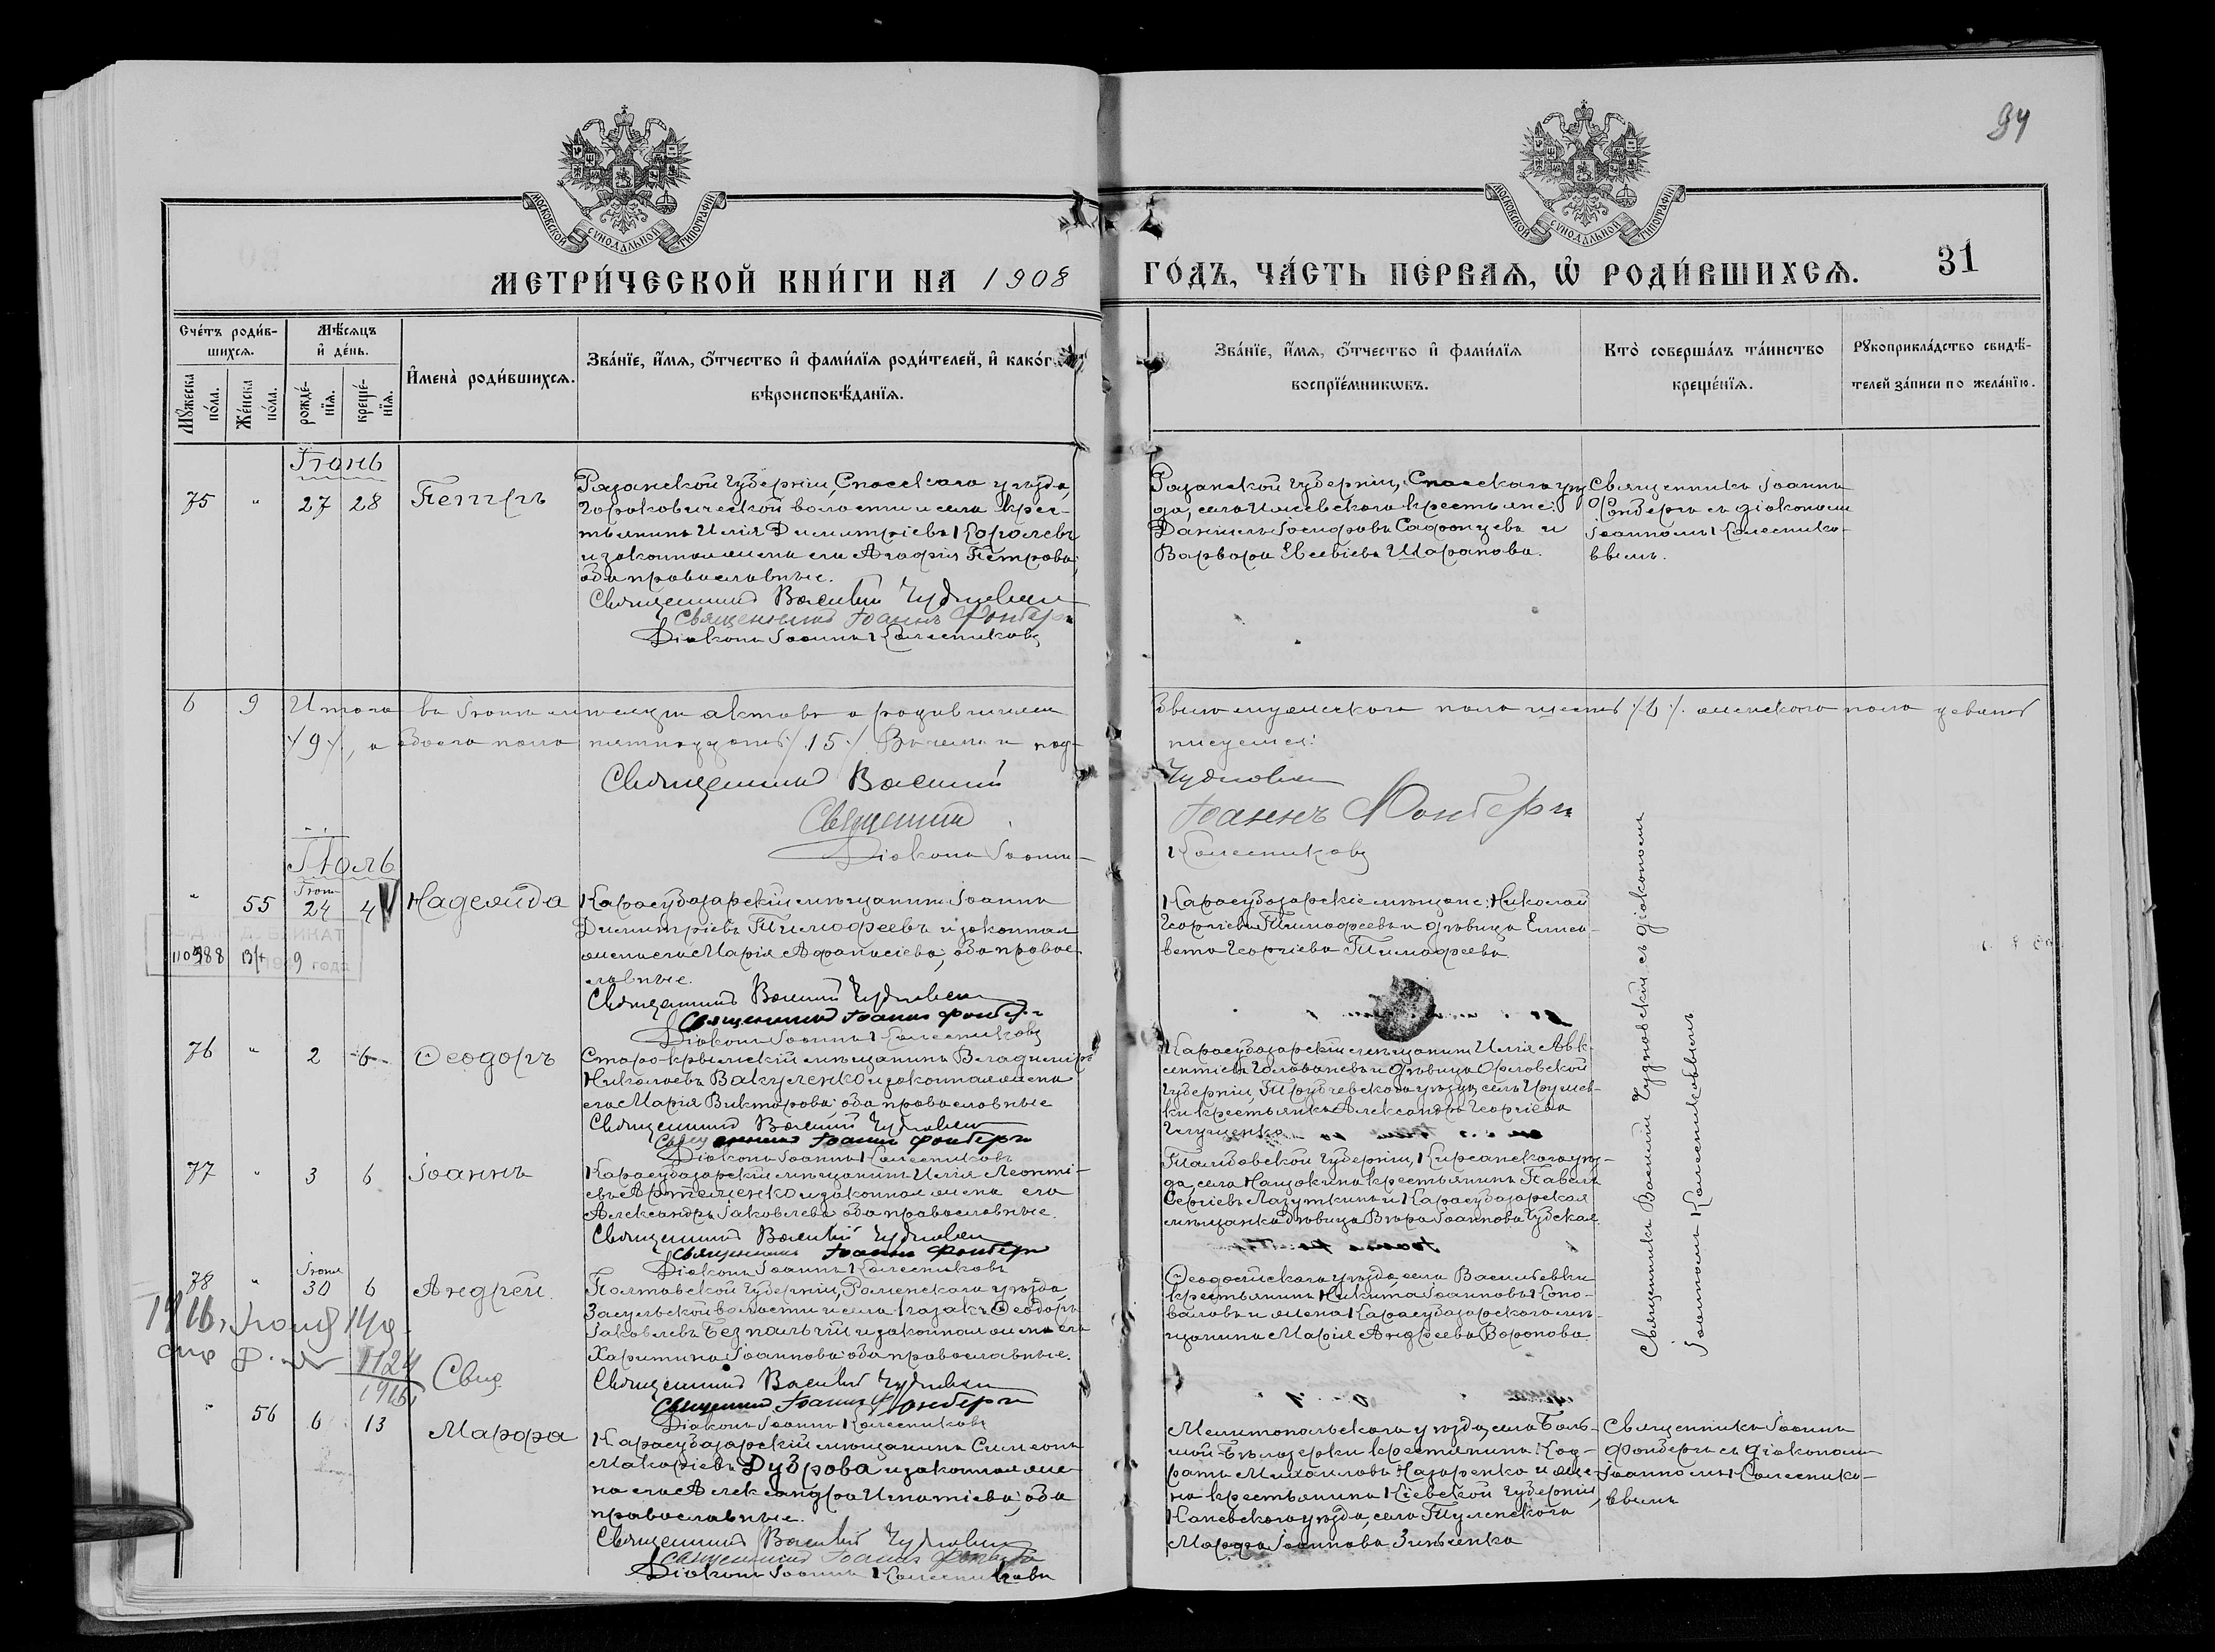 94
МОСКОВСКОЙ СѴНОДАЛЬНОЙ ТИПОГРАФІИ
МОСКОВСКОЙ СѴНОДАЛЬНОЙ ТИПОГРАФІИ
МЕТРИ́ЧЕСКОЙ КНИ́ГИ НА 1908
ГО́ДЪ, ЧА́СТЬ ПЕРВАЯ, Ѡ РОДИ́ВШИХСЯ.
31
Сче́тъ роди́в-
шихся.
Мѣ́сяцъ
и де́нь.
Мꙋжеска
по́ла.
Же́нска
по́ла.
рожде́-
нїя.
креще́-
нїя.
Имена̀ роди́вшихся.
Зва́нїе, и́мя, о́тчество и фами́лїя роди́телей, и како́г
вѣроисповѣ́данїя.
Зва́нїе, и́мя, о́тчество и фами́лїя
воспрїе́мникѡвъ.
Кто̀ соверша́лъ та́инство
креще́нїя.
Рꙋкоприкла́дство свидѣ́-
телей за́писи по жела́нїю.
Іюнь
75 " 27 28 Петръ
Рязанской губерніи, Спасскаго уѣзда,
волости и села крес-
тьянинъ Илія Димитріевъ Королевъ
и законная жена его Агафія Петрова,
оба православные.
Священникъ Василій Чудновскій
Священникъ Іоаннъ Фонберъ
Діаконъ Іоаннъ Колесниковъ
Рязанской губерніи, Спасскаго уѣз
да, села Ижевскаго крестьяне:
Даніилъ Іосифовъ и
Варвара Евсевіева Шарапова.
Священникъ Іоаннъ
Фонберъ съ діакономъ
Іоанномъ Колеснико-
вымъ.
6 9 Итого въ Іюнѣ мѣсяцѣ актовъ о родившихся
было мужескаго пола шесть /6/. женскаго пола девять
/9/, а обоего пола пятнадцать /15/. Въ чемъ и под-
писуемся:
Священникъ Василій
Чудновскій
Священникъ
Іоаннъ Фонберъ
Діаконъ Іоаннъ
Колесниковъ
Іюль
" 55 Іюня 24 4 Надежда
110588 19 года
Карасубазарскій мѣщанинъ Іоаннъ
Димитріевъ Тимофеевъ и законная
жена его Марія Афанасіева, оба право-
славные.
Священникъ Василій Чудновскій
Священникъ Іоаннъ Фонберъ
Діаконъ Іоаннъ Колесниковъ
Карасубазарскіе мѣщане: Николай
Георгіевъ Тимофеевъ и дѣвица Елиса-
вета Георгіева Тимофеева
Священникъ Василій Чудновскій съ діакономъ
Іоанномъ Колесниковымъ
76 " 2 6 Ѳеодоръ
Старо-крымскій мѣщанинъ Владиміръ
Николаевъ Вакуленко и законная жена
его Марія Викторова, оба православные
Священникъ Василій Чудновскій
Священникъ Іоаннъ Фонберъ
Діаконъ Іоаннъ Колесниковъ
Карасубазарскій мѣщанинъ Илія Авк-
сентіевъ Голованевъ и дѣвица Орловской
губерніи, Трубчевскаго уѣзда, села
крестьянка Александра Георгіева
77 " 3 6 Іоаннъ
Карасубазарскій мѣщанинъ Илія Леонті-
евъ Артеменко и законная жена его
Александра Іаковлева оба православные.
Священникъ Василій Чудновскій
Священникъ Іоаннъ Фонберъ
Діаконъ Іоаннъ Колесниковъ
Тамбовской губерніи, Кирсановскаго уѣз-
да, села Нащокина крестьянинъ Павелъ
Сергіевъ Лазуткинъ и Карасубазарская
мѣщанка дѣвица Вѣра Іоаннова Чудская.
78 " Іюня 30 6 Андрей.
Полтавской губерніи, Роменскаго уѣзда,
Засульской волости и села казакъ Ѳеодоръ
Іаковлевъ Безпалый и законная жена его
Харитина Іоаннова оба православные.
Священникъ Василій Чудновскій
Священникъ Іоаннъ Фонберъ
Діаконъ Іоаннъ Колесниковъ
Ѳеодосійскаго уѣзда, села Васильевки
крестьянинъ Никита Іоанновъ Коно-
валовъ и жена Карасубазарскаго мѣ-
щанина Марія Андреева Воронова
1124
1916
Свид.
" 56 6 13 Марфа
Карасубазарскій мѣщанинъ Симеонъ
Макаріевъ Дуброва и законная же-
на его Александра Игнатіева, оба
православные.
Священникъ Василій Чудновскій
Священникъ Іоаннъ Фонберъ
Діаконъ Іоаннъ Колесниковъ
Мелитопольскаго уѣзда, села Боль-
шой Бѣлозерки крестьянинъ Код-
ратъ Михаиловъ Назаренко и же-
на крестьянина Кіевской губерніи,
Каневскаго уѣзда, села
Марфа Іоаннова Зинченко
Священникъ Іоаннъ
Фонберъ съ діакономъ
Іоанномъ Колеснико-
вымъ